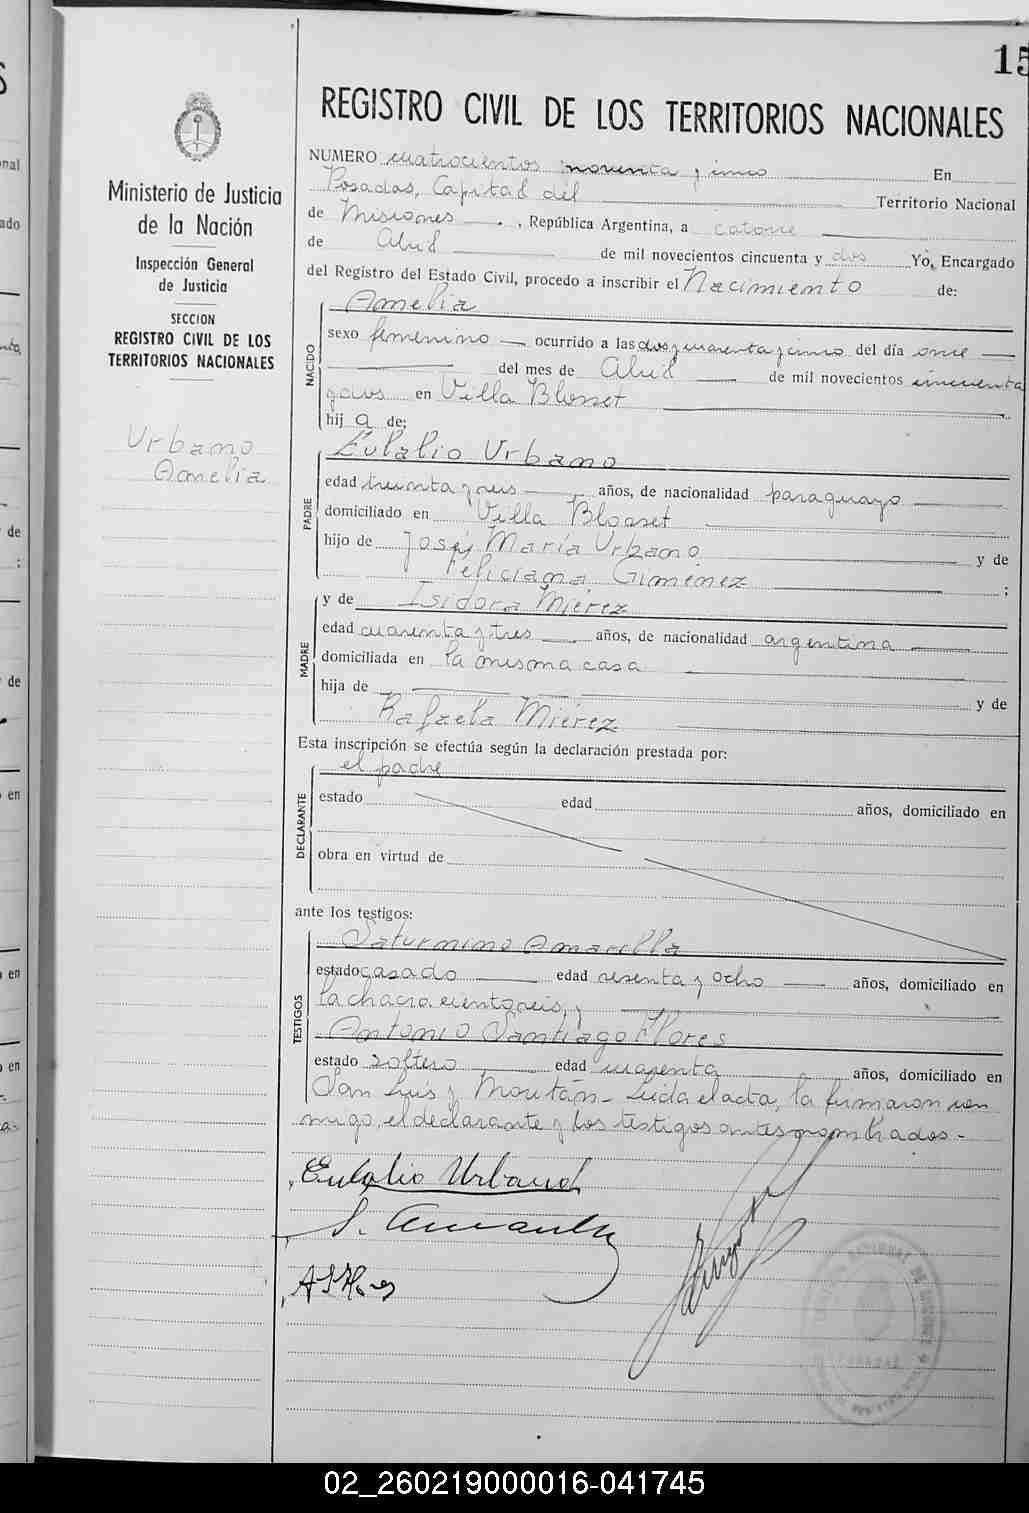 15
REGISTRO CIVIL DE LOS TERRITORIOS NACIONALES
Ministerio de Justicia
de la Nación
Inspección General
de Justicia
SECCION
REGISTRO CIVIL DE LOS
TERRITORIOS NACIONALES
Urbano
Amelia
NUMERO cuatrocientos noventa y cinco En
Posadas, Capital del Territorio Nacional
de Misiones, República Argentina, a catorce
de Abril de mil novecientos cincuenta y dos Yo, Encargado
del Registro del Estado Civil, procedo a inscribir el Nacimiento de:
NACIDO
Amelia
sexo femenino ocurrido a las dos y cuarenta y cinco del día once
del mes de Abril de mil novecientos cincuenta
y dos en Villa Blosset
hij a de:
PADRE
Eulalio Urbano
edad treinta y seis años, de nacionalidad paraguayo
domiciliado en Villa Blosset
hijo de José María Urbano y de
Feliciana Giménez ;
MADRE
y de Isidora Miérez
edad cuarenta y tres años, de nacionalidad argentina
domiciliada en la misma casa
hija de y de
Rafaela Miérez
Esta inscripción se efectúa según la declaración prestada por:
DECLARANTE
el padre
estado edad años, domiciliado en
obra en virtud de
ante los testigos:
TESTIGOS
Saturnino Amarilla
estado casado edad sesenta y ocho años, domiciliado en
la chacra ciento seis, y
Antonio Santiago Flores
estado soltero edad cuarenta años, domiciliado en
San Luis y Moután - Leída el acta, la firmaron con
migo, el declarante y los testigos antes nombrados.-
Eulalio Urbano
S. Amarilla
02_260219000016-041745